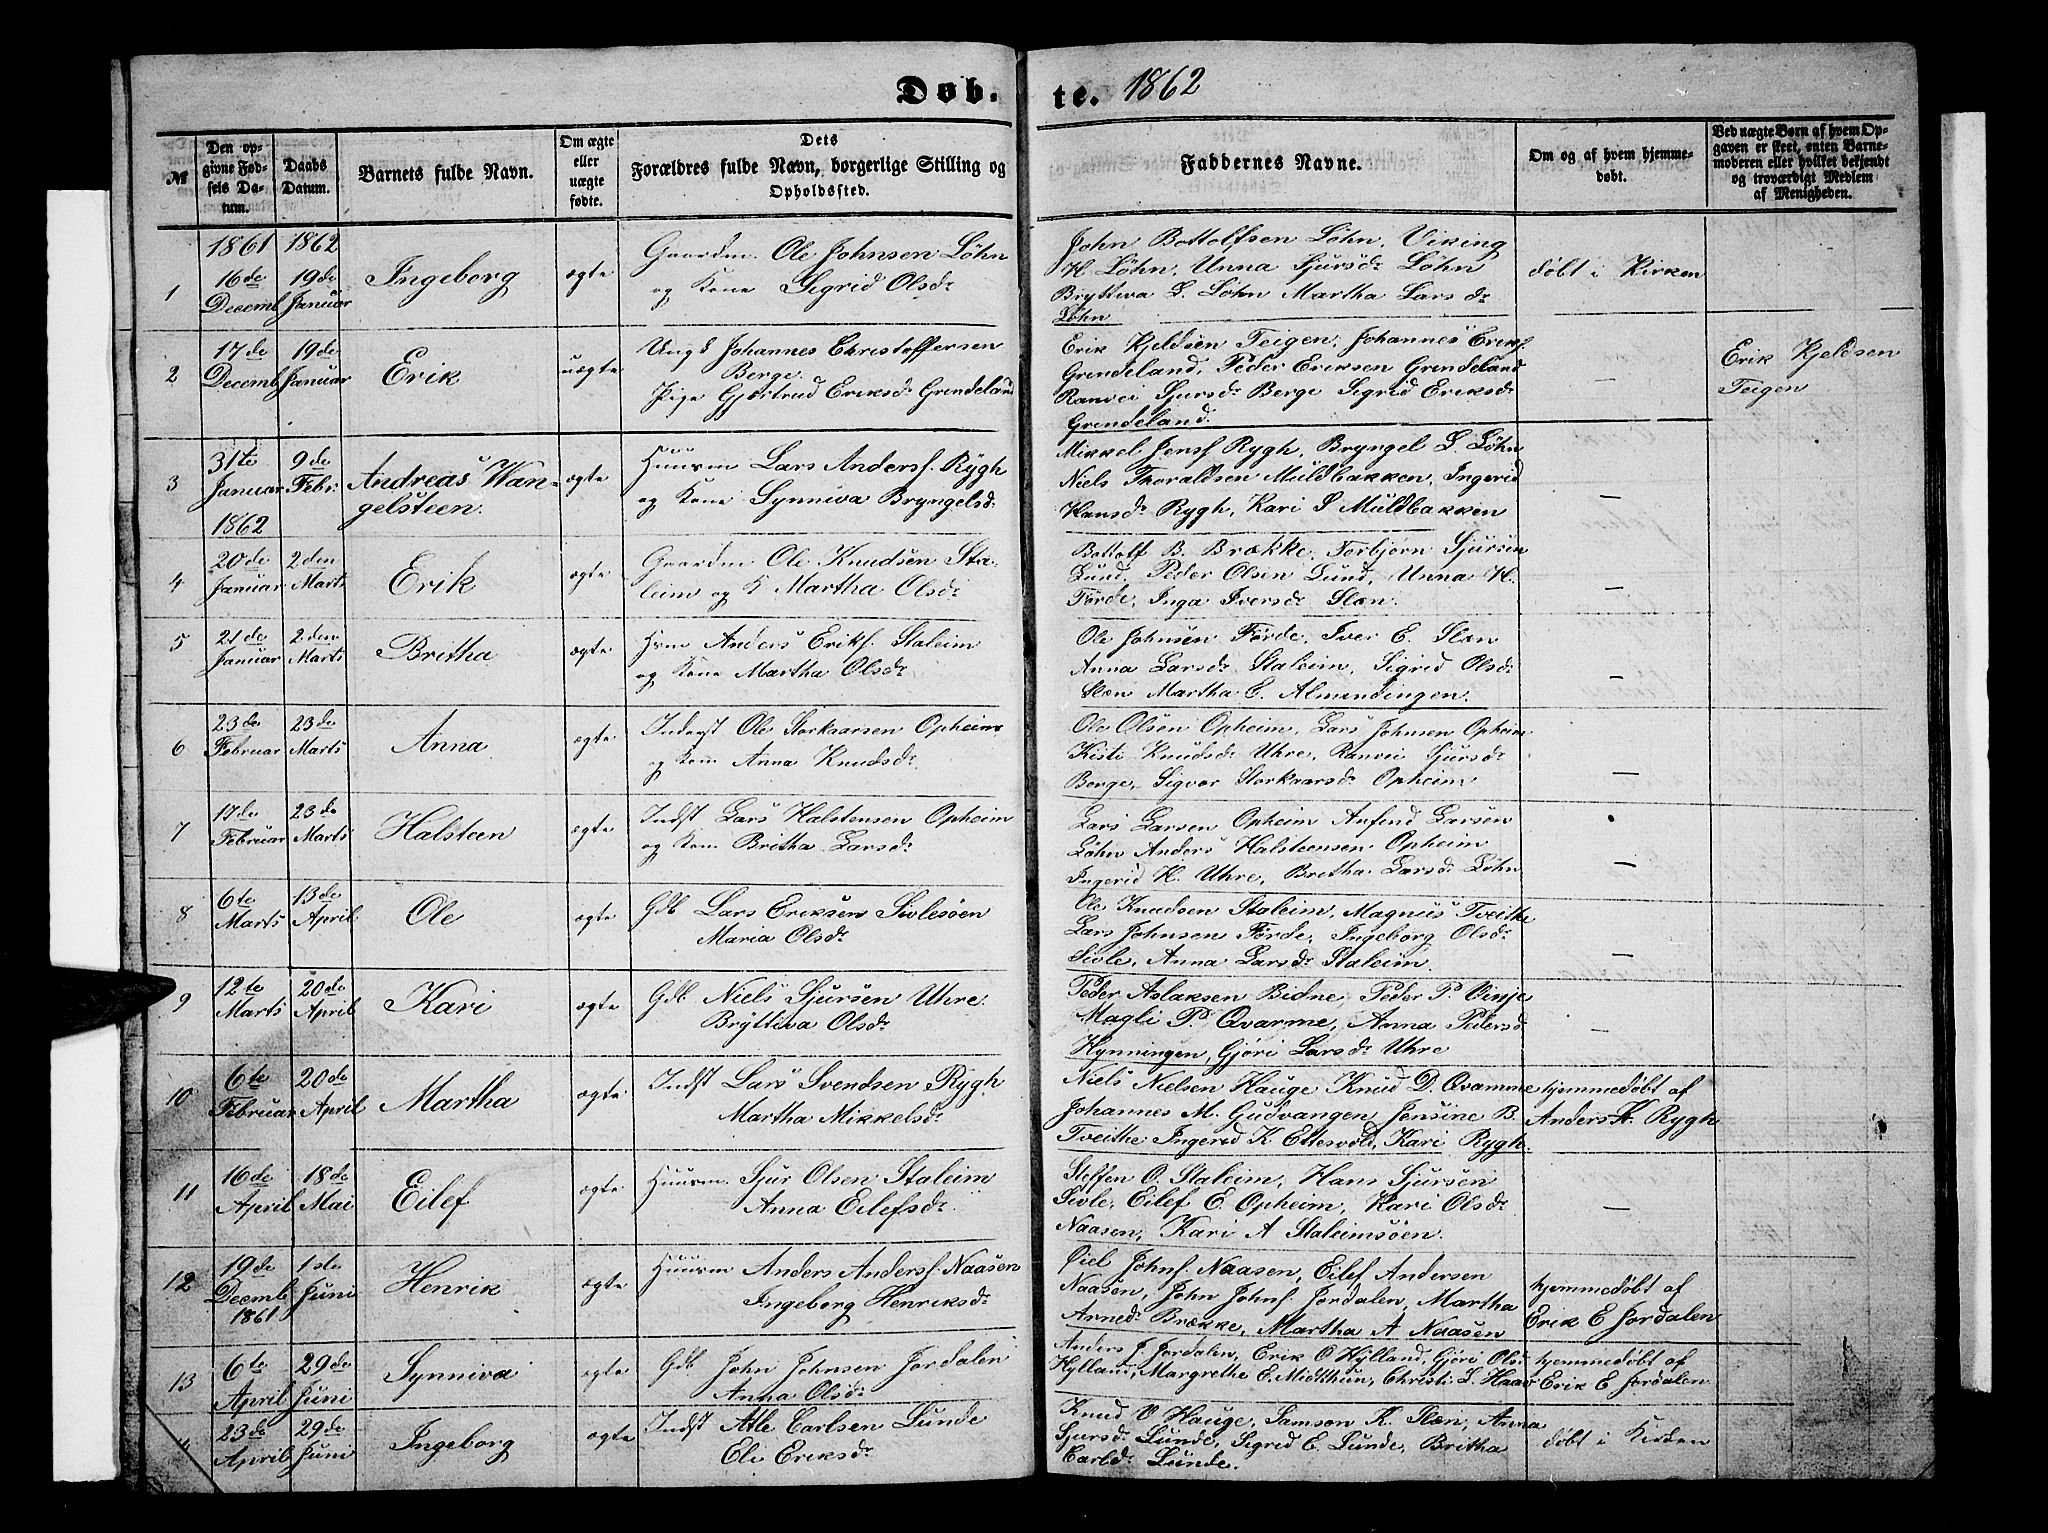 Døb. te. 1862
№
Den op-
givne Fød-
sels Da-
tum.
Daabs
Datum.
Barnets fulde Navn.
Om ægte
eller
uægte
fødte.
Dets
Forældres fulde Navn, borgerlige Stilling og
Opholdssted.
Faddernes Navne.
Om og af hvem hjemme-
døbt.
Ved uægte Børn af hvem Op-
gaven er skeet, enten Barne-
moderen eller hvilket bekjendt
og troværdigt Medlem
af Menigheden.
1861 1862
1 16de Decemb 19de Januar Ingeborg ægte
Gaardm Ole Johnsen Löhn
og Kone Sigrid Olsdr
John Bottolfsen Löhn, Viking
H. Löhn, Unna Sjursdr Löhn
Brytteva L. Löhn Martha Larsdr
Löhn
døbt i Kirken
2 17de Decemb 19de Januar Erik uægte
Ungk Johannes Christoffersen
Berge
Pige Gjørtrud Eriksdr Grendeland
Erik Kjeldsen Teigen, Johannes Eriks.
Grendeland, Peder Eriksen Grendeland
Ranvei Sjursdr Berge Sigrid Eriksdr
Grendeland.
—
Erik Kjeldsen
Teigen
3 31te Januar 1862 9de Febr Andreas Wan-
gelsteen. ægte
Huusm Lars Anders. Rygh
og Kone Synniva Bryngelsdr
Mikkel Jens. Rygh, Bryngel L Löhn
Niels Thoraldsen Muldbakken, Ingerid
Hansdr Rygh, Kari S Muldbakken
—
4 20de Januar 2den Marts Erik ægte
Gaardm Ole Knudsen Sta-
leim og K Martha Olsdr
Bottolf B. Brække, Torbjørn Sjursen
Lund, Peder Olsen Lund, Unna H.
Förde, Inga Iversdr Slæn.
—
5 21de Januar 2den Marts Britha ægte
Hsm Anders Eriks. Staleim
og Kone Martha Olsdr
Ole Johnsen Förde, Iver E. Slæn
Anna Larsdr Staleim, Sigrid Olsdr
Slæn Martha E. Almendingen.
—
6 23de Februar 23de Marts Anna ægte
Inderst Ole Storkaarsen Opheim
og Kone Anna Knudsdr
Ole Olsen Opheim, Lars Johnsen Opheim
Kisti Knudsdr Uhre, Ranvei Sjursdr
Berge, Sigvor Storkaarsdr Opheim
—
7 17de Februar 23de Marts Halsteen ægte
Indst Lars Halstensen Opheim
og Kone Britha Larsdr
Lars Larsen Opheim Arfind Larsen
Löhn Anders Halsteensen Opheim
Ingerid H. Uhre, Britha Larsdr Löhn
—
8 6te Marts 13de April Ole ægte
Gdb Lars Eriksen Sivlesöen
Maria Olsdr
Ole Knudsen Staleim, Magnus Tveithe
Lars Johnsen Förde, Ingeborg Olsdr
Sivle, Anna Larsdr Staleim.
—
9 12te Marts 20de April Kari ægte
Gdb Niels Sjursen Uhre
Bryttiva Olsdr
Peder Aslaksen Bidne, Peder P. Vinje
Magli P. Qvarme, Anna Pedersd
Hynningen, Gjöri Larsdr Uhre
—
10 6te Februar 20de April Martha ægte
Indst Lars Svendsen Rygh
Martha Mikkelsdr
Niels Nielsen Hauge Knud D. Qvamme
Johannes M. Gudvangen Jensine B.
Tveithe Ingerid K. Ettesvold, Kari Rygh.
hjemmedøbt af
Anders K. Rygh
11 16de April 18de Mai Eilef ægte
Huusm. Sjur Olsen Staleim
Anna Eilefsdr
Steffen O. Staleim, Hans Sjursen
Sivle, Eilef E. Opheim, Kari Olsdr
Naasen, Kari A Staleimsöen.
—
12 19de Decemb 1861 1ste Juni Henrik ægte
Huusm Anders Anders. Naasen
Ingeborg Henriksdr
Öiel Johns. Naasen, Eilef Andersen
Naasen, John Johns. Jordalen, Martha
Arnedr Brække, Martha A Naasen
hjemmedøbt af
Erik E Jordalen
13 6te April 29de Juni Synniva ægte
Gdb John Johnsen Jordalen
Anna Olsdr
Anders J. Jordalen, Erik O Hylland, Gjöri Olsd
Hylland, Margrethe E. Midthun, Christi L. Haae
hjemmedøbt af
Erik E. Jordalen
23de April 29de Juni Ingeborg ægte
Indst Atle Carlsen Lunde
Eli Eriksdr
Knud O Hauge, Samson K. Slæn, Anna
Sjursdr Lunde, Sigrid E. Lunde, Britha
Carlsdr Lunde.
døbt i Kirken